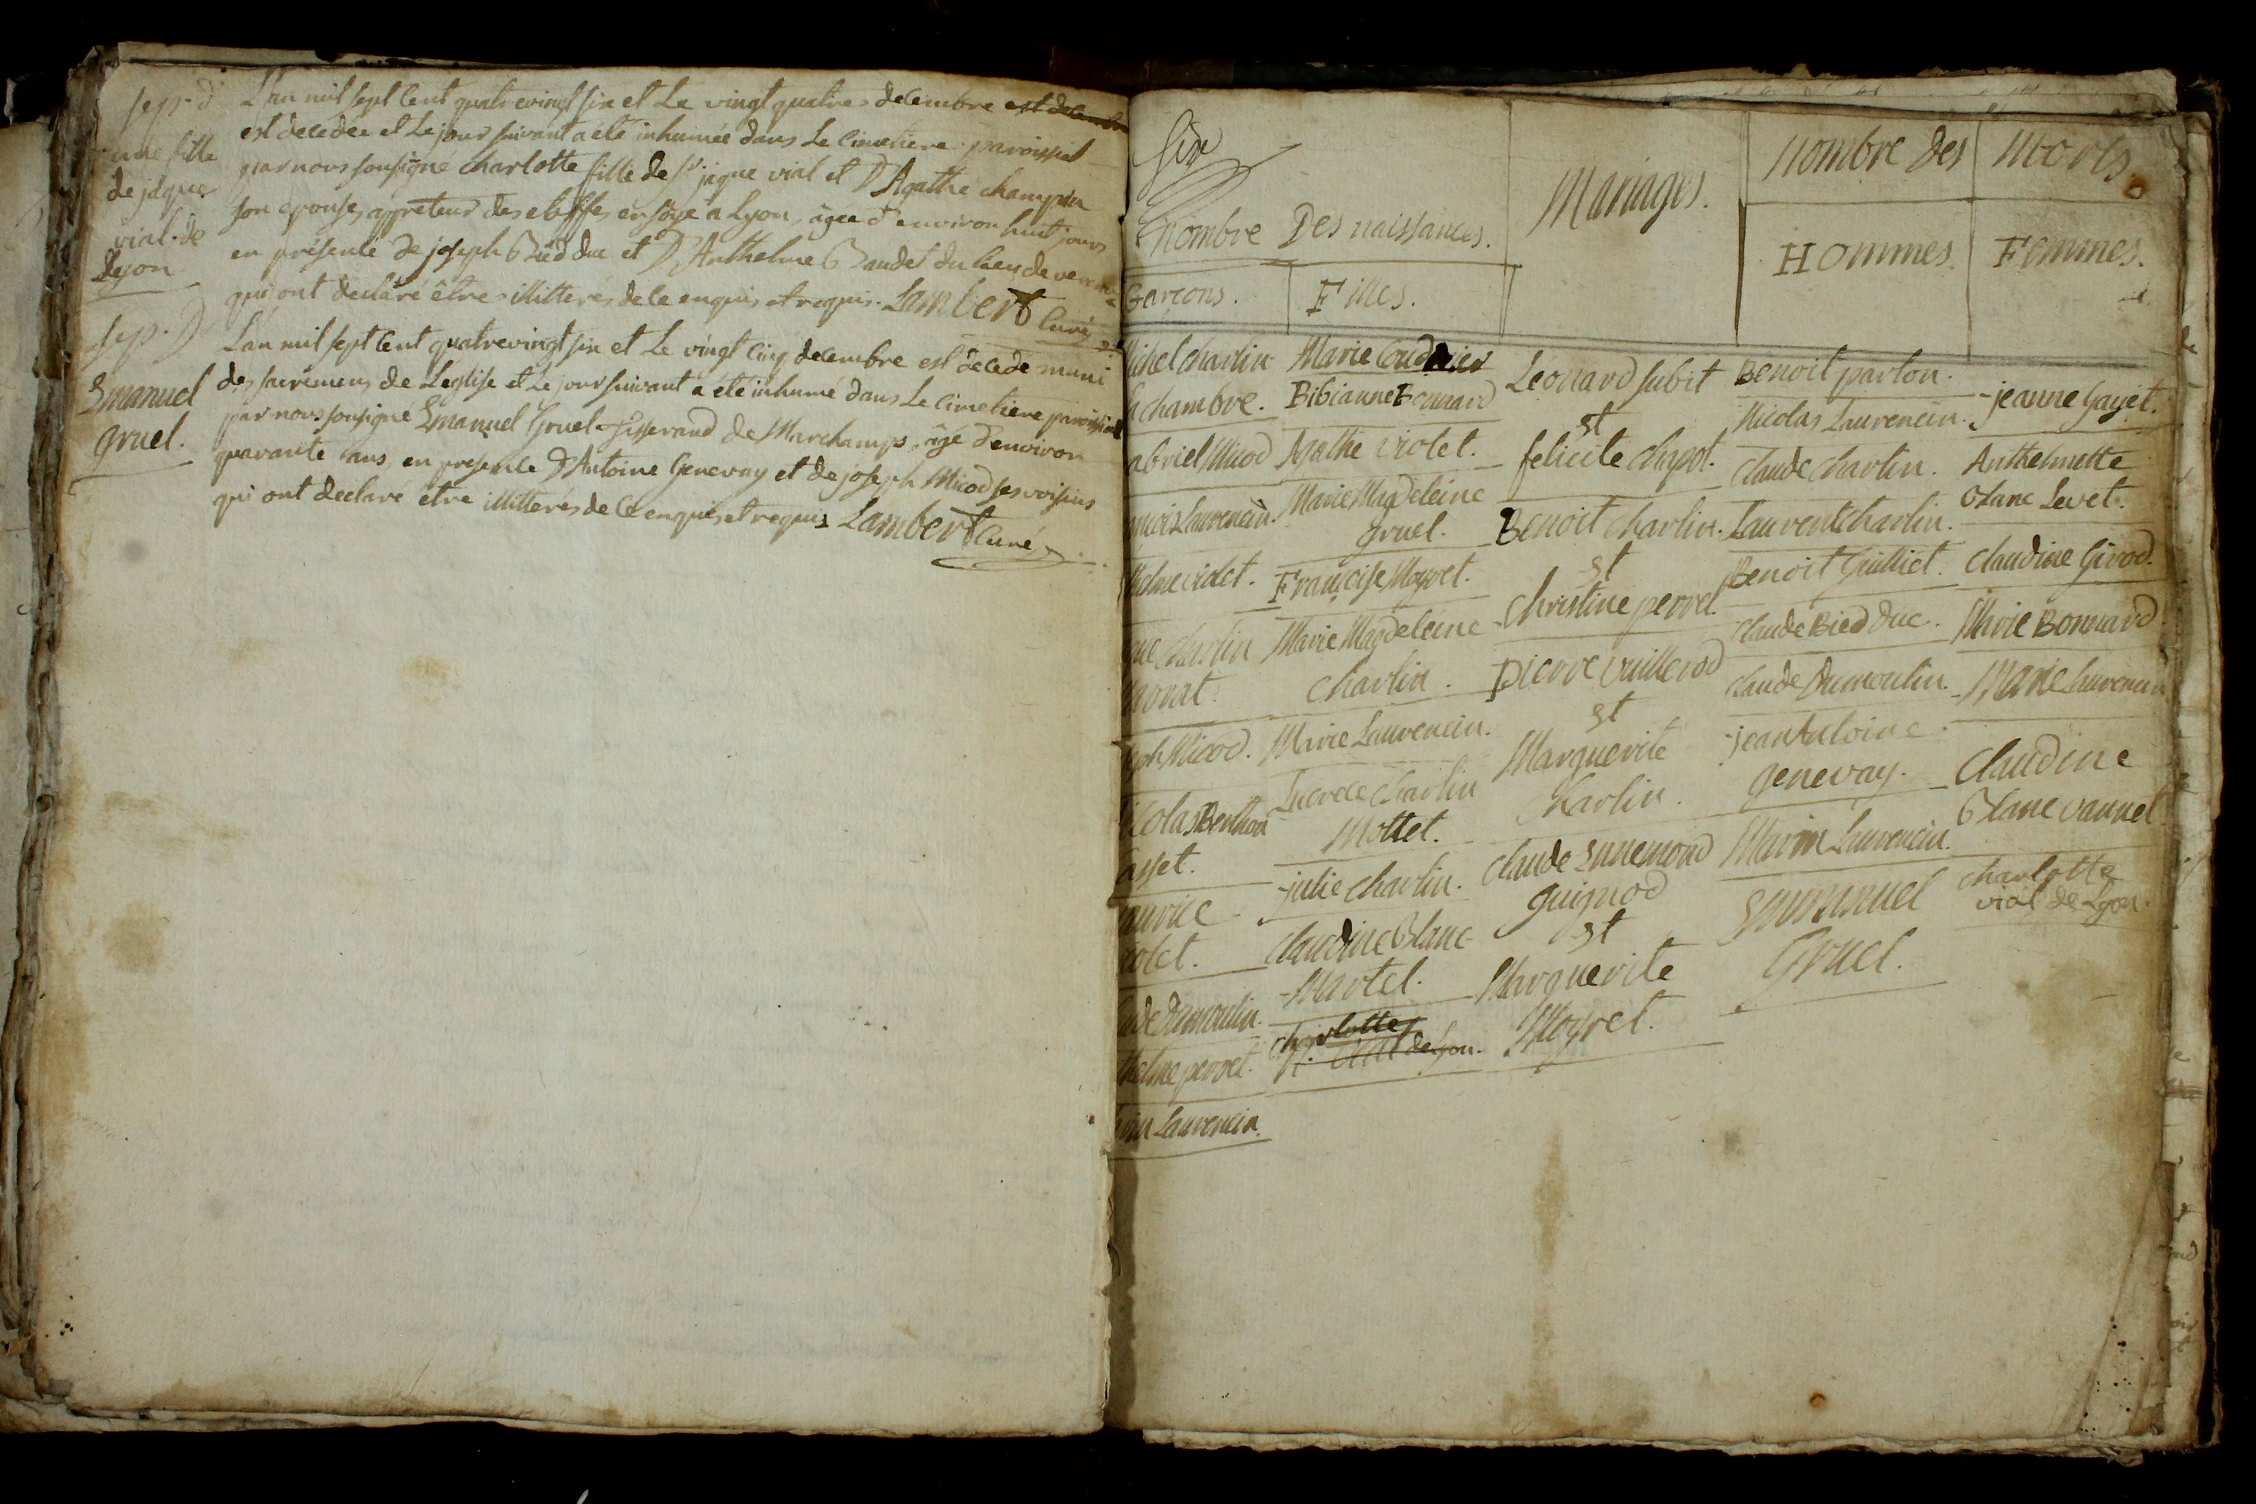 sep. d'
une fille
de jâque
vial. de
Lyon
L'an mil sept cent quatrevingt six et Le vingt quatre decembre est decembre
est decedée et Le jour suivant a été inhumée dans Le cimetiere paroissial
par nous soussigné charlotte fille de Sr jâque vial et D'Agathe champin
son epouse, appreteur des etoffes en soye a Lyon, âgée d'environ huit jours
en présence de joseph Bied duc et D'Anthelme Baudet du Lieu de
qui ont declaré être illitterés de ce enquis et requis. Lambert Curé
sep. D
Emanuel
gruel.
L'an mil sept cent quatrevingt six et Le vingt cinq decembre est decedé muni
des sacremens de Leglise et Le jour suivant a été inhumé dans Le cimetiere paroissial
par nous soussigné Emanuel Gruel Tisserand de Marchamps, âgé d'environ
quarante ans, en presence D'Antoine Genevay et de joseph Micod ses voisins
qui ont declaré etre illitterés de ce enquis et requis Lambert Curé
fin
nombre Des naissances.
Garçons.
Filles.
Mariages.
nombre Des
Morts
Hommes.
Femmes.
ichel charlin
chambre.
abriel Micod
ncois Laurencin.
thelme violet.
que charlin
arnat.
eph Micod.
icolas Berthon
asset.
aurice
iolet.
ude Dumoulin.
thelme perret.
Laurencin.
Marie Coudurier
Bibianne Bonnard
Agathe violet.
Marie Magdeleine
gruel.
Françoise Moyret.
Marie Magdeleine
charlin.
Marie Laurencin.
Lucrece charlin
Mottet.
julie charlin.
claudine Blanc
Martel.
charlotte
vial de Lyon.
Léonard subit
et
felicite chapot.
Benoit charlin.
et
christine perret.
pierre vuillerod
et
Marguerite
charlin.
claude Ennemond
guignod
et
Marguerite
Moyret.
Benoit parlon.
Nicolas Laurencin.
claude charlin.
Laurent charlin.
Benoit Guilliet.
claude Bied duc.
claude Dumoulin.
jean Antoine
genevay.
Marin Laurencin.
Emmanuel
Gruel.
jeanne Gayet.
Anthelmette
Blanc Levet.
claudine Girod.
Marie Bonnard.
Marie Laurencin
Claudine
Blanc vannel.
charlotte
vial de Lyon.